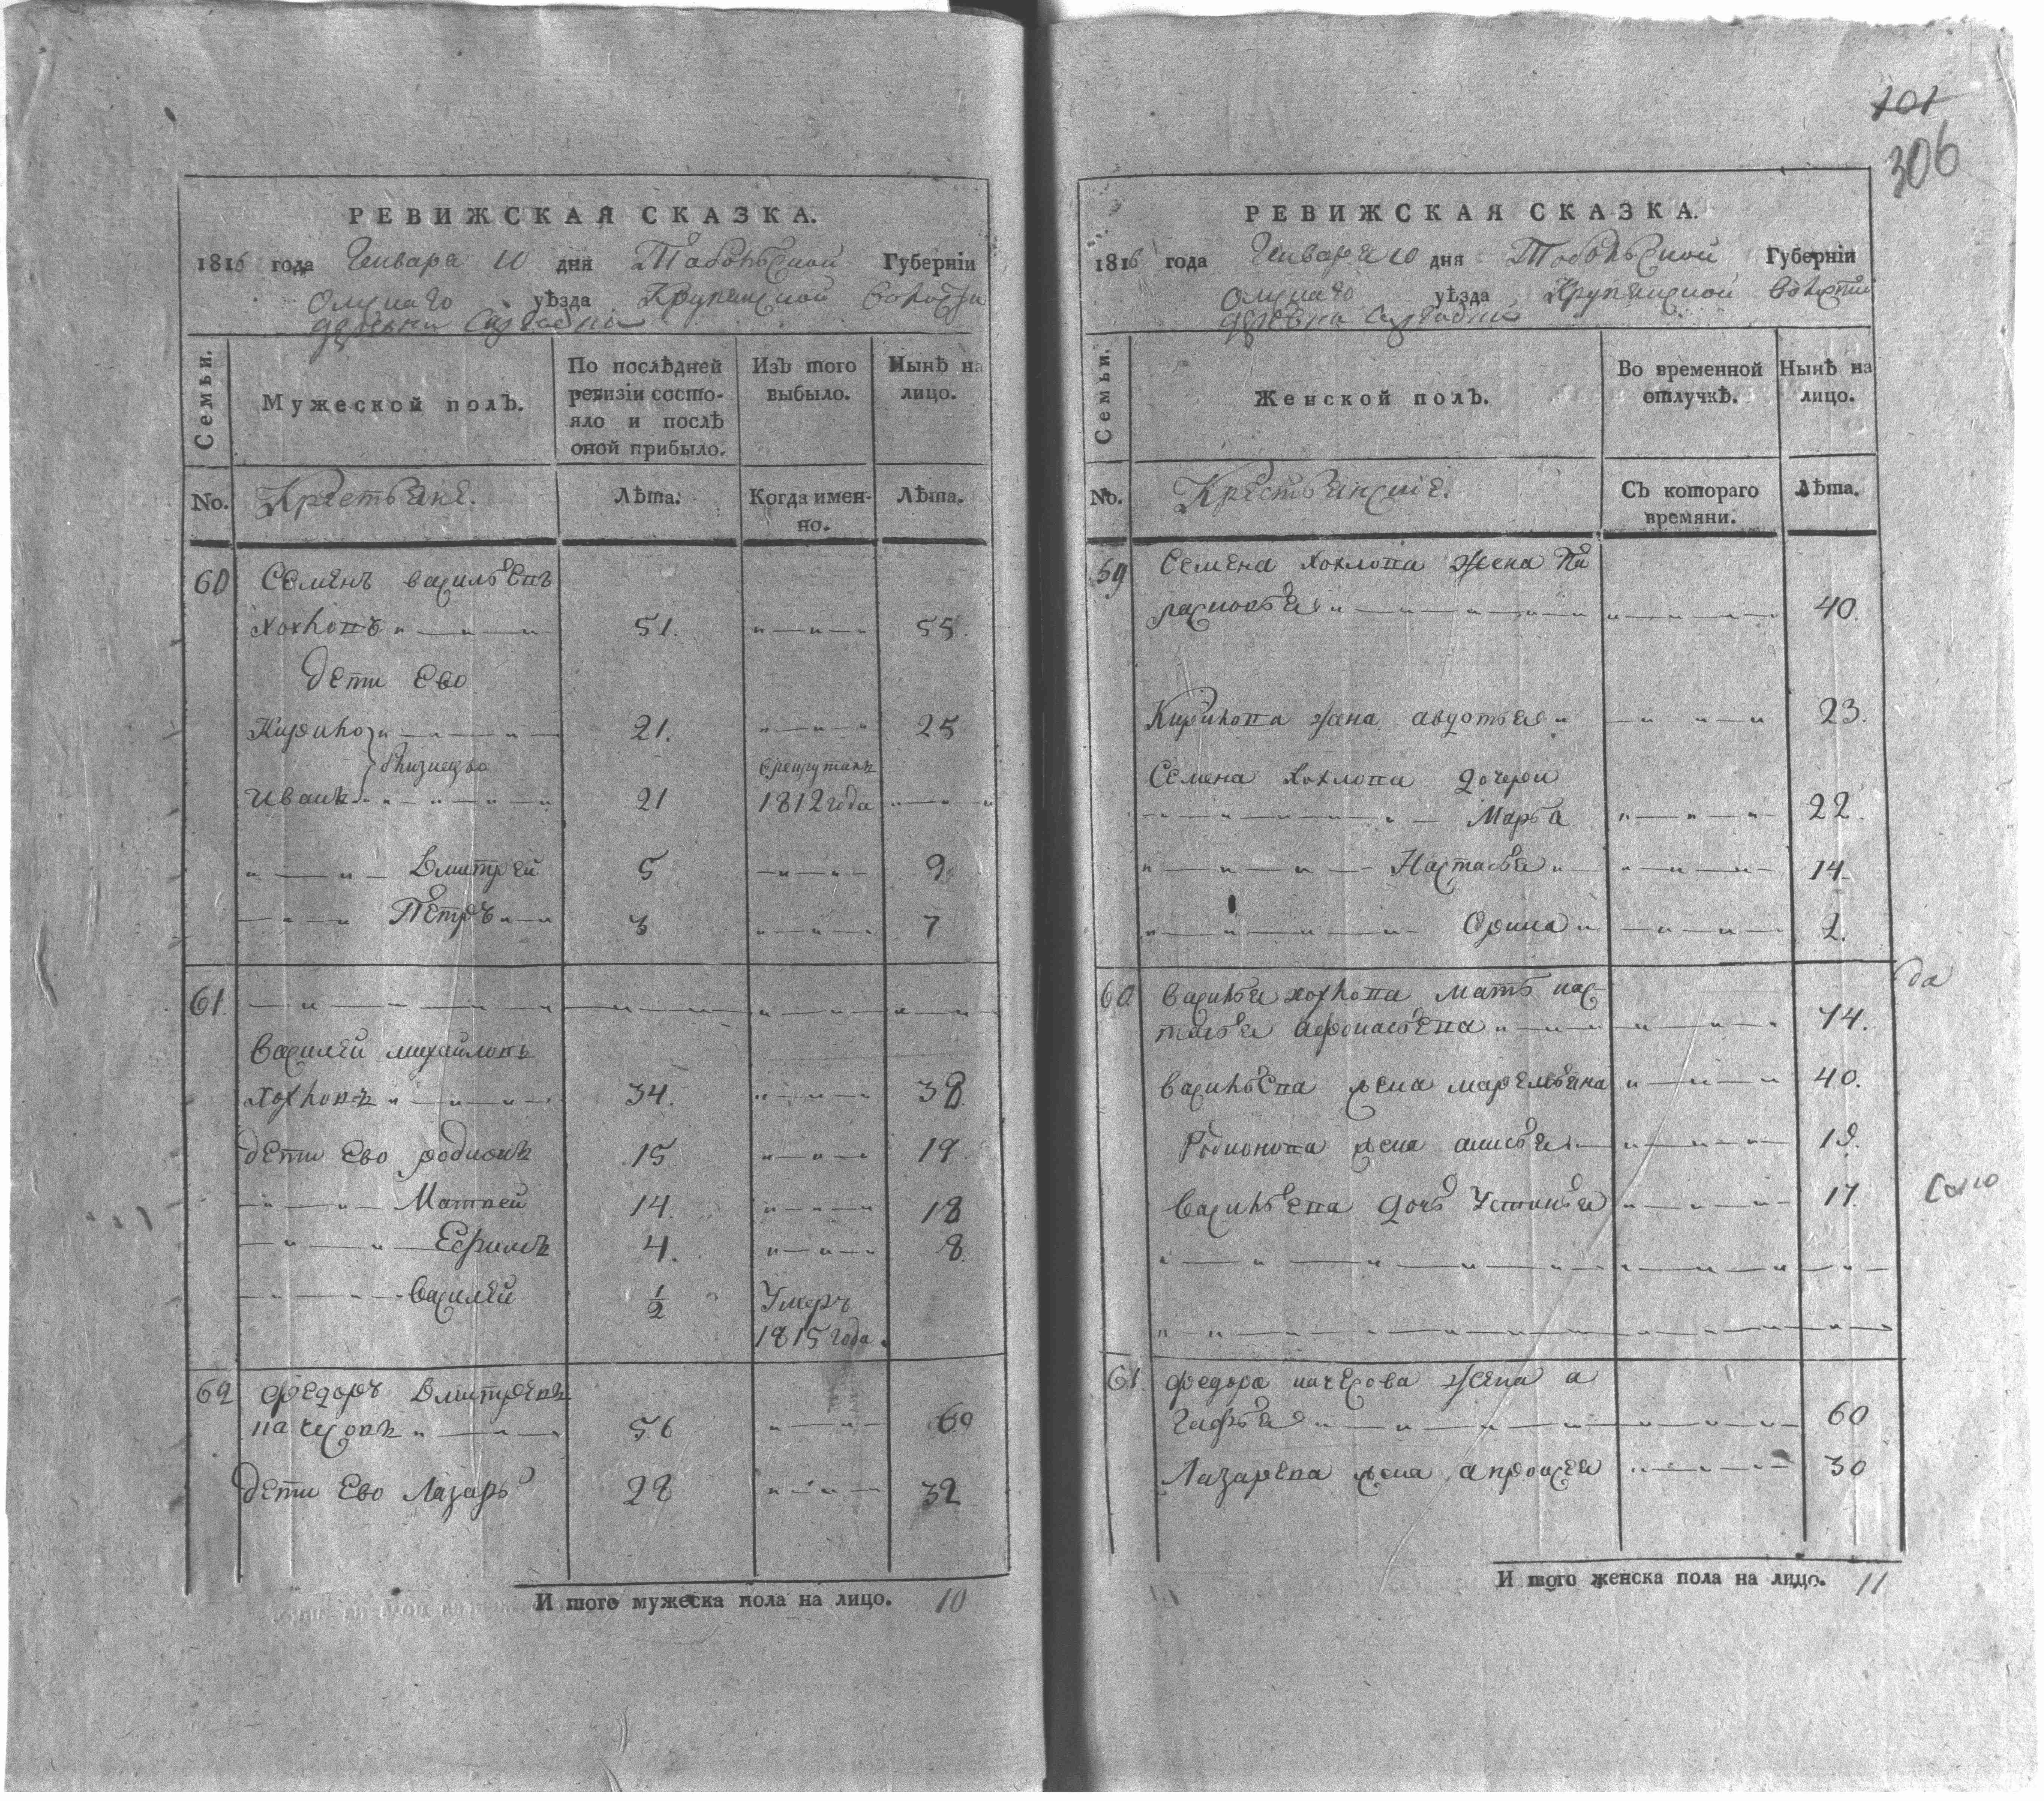 101
306
РЕВИЖСКАЯ СКАЗКА.
1816 года Генваря 10 дня Тобольской Губерніи
Омскаго уѣзда Крупянской волости
деревни
Семьи.
Мужеской полъ.
По послѣдней ревизіи состо-
яло и послѣ
оной прибыло.
Изъ того
выбыло.
Нынѣ на
лицо.
No.
Крестьяне.
Лѣта.
Когда имен-
но.
Лѣта.
60 Семенъ васильевъ
Хохловъ 51. 55.
дети ево
Кирило 21. 25
близнецы
врекрутахъ
иванъ 21 1812 года
Дмитрей 5 9
Петръ 3 7
61.
василей михайловъ
Хохловъ 34. 38.
дети ево родионъ 15 19.
Матвей 14. 18
Ефимъ 4. 8.
василей 1/2 Умеръ
1815 года.
62 Федоръ Дмитревъ
пачесовъ 56 60
дети ево Лазарь 28 32
И того мужеска пола на лицо. 10
РЕВИЖСКАЯ СКАЗКА.
1816 года Генваря 10 дня Тобольской Губерніи
Омскаго уѣзда Крупянской волости
деревни
Семьи.
Женской полъ.
Во временной
отлучкѣ.
Нынѣ на
лицо.
No.
Крестьянские.
Съ котораго
времяни.
Лѣта.
59 Семена Хохлова жена Па
расковья 40.
Кирилова жена авдотья 23.
Семена Хохлова дочери
Марья 22.
Настасья 14.
Орина 2.
да
60 василья хохлова мать нас-
тасья афонасьева 74.
васильева жена маремьяна 40.
Родионова жена анисья 19.
васильева дочь Устинья 17.
61. Федора пачесова жена а
гафья 60
Лазарева жена апросея 30
И того женска пола на лицо. 11